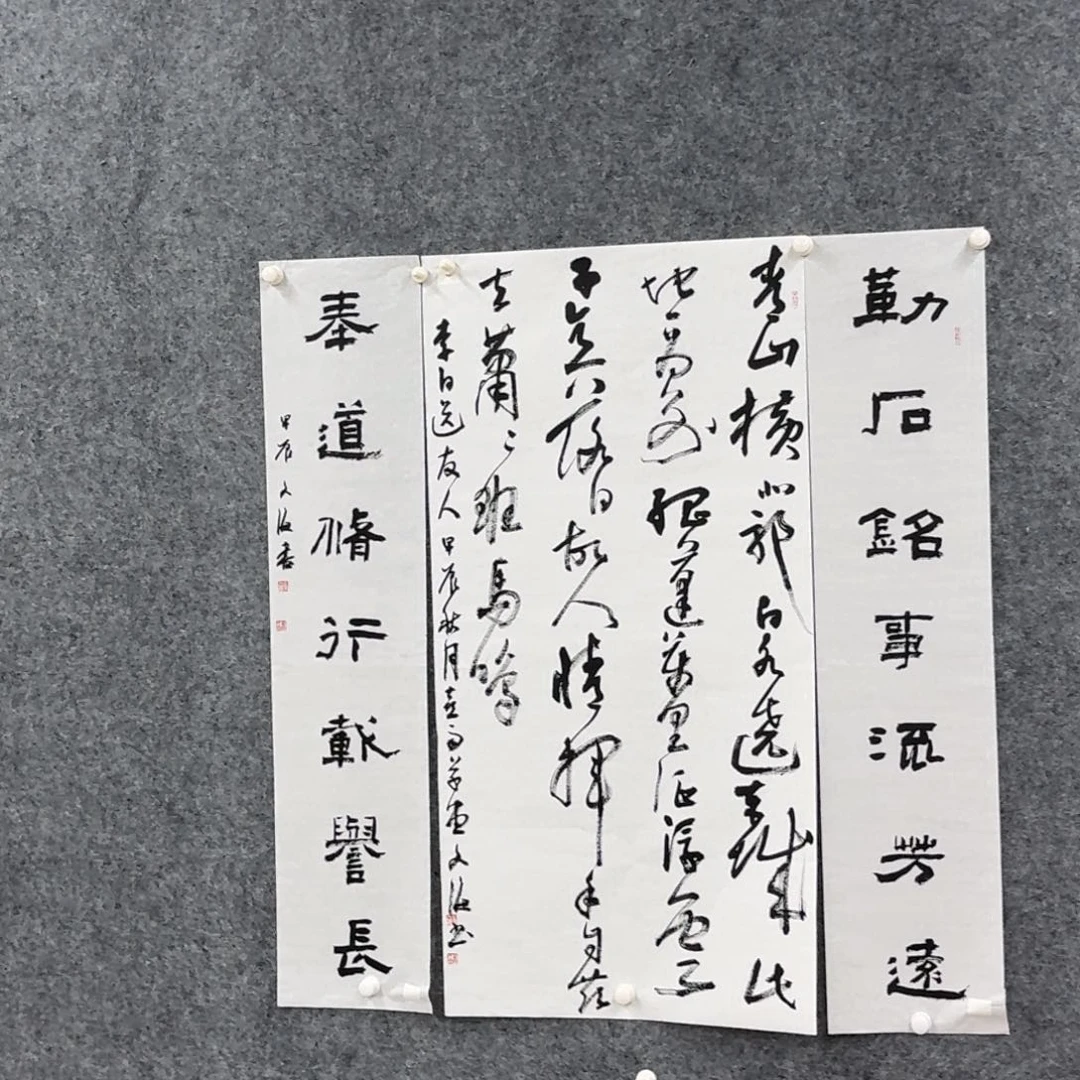 勒石銘事流芳遠
青山橫北郭白水遶東城此
地一為别孤蓬萬里征浮雲遊
子意落日故人情揮手自兹
去蕭〻班馬鳴
李白送友人 甲辰秋月 书
奉道脩行載譽長
甲辰 書